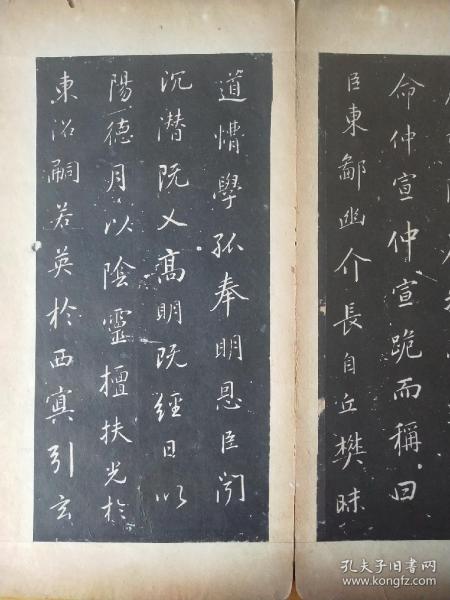 命仲宣仲宣跪而稱曰
臣東鄙幽介長自丘樊昧
道懵學孤奉明恩臣聞
沉潛既义高明既經日以
陽德月以陰靈擅扶光於
東沼嗣若英於西冥引玄
孔夫子旧书网
www.kongfz.com